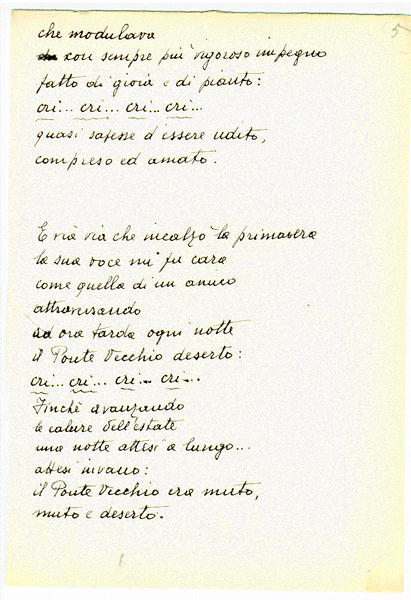 5
che modulava
con sempre più vigoroso impegno
fatto di gioia e di pianto:
cri... cri... cri... cri...
quasi sapesse d'essere udito,
compreso ed amato.
E via via che incalzò la primavera
la sua voce mi fu cara
come quella di un amico
attraversando
ad ora tarda ogni notte
il Ponte Vecchio deserto:
cri... cri... cri... cri...
Finchè avanzando
le calure dell'estate
una notte attesi a lungo...
attesi invano:
il Ponte Vecchio era muto,
muto e deserto.